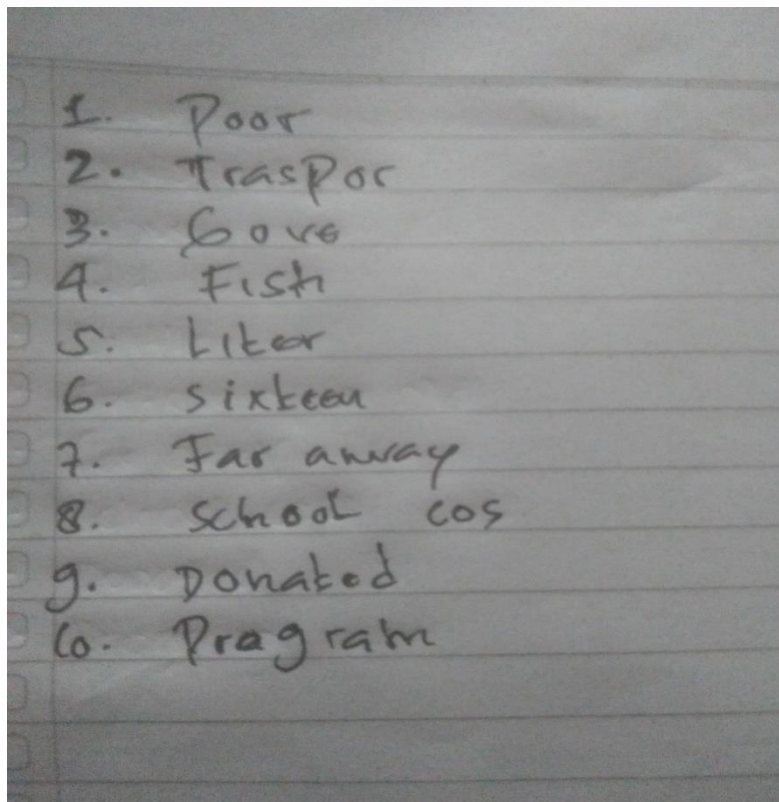 1. Poor
2. Traspor
3. Gove
4. Fish
5. Liter
6. sixteen
7. Far away
8. School cos
9. Donated
10. Pragram